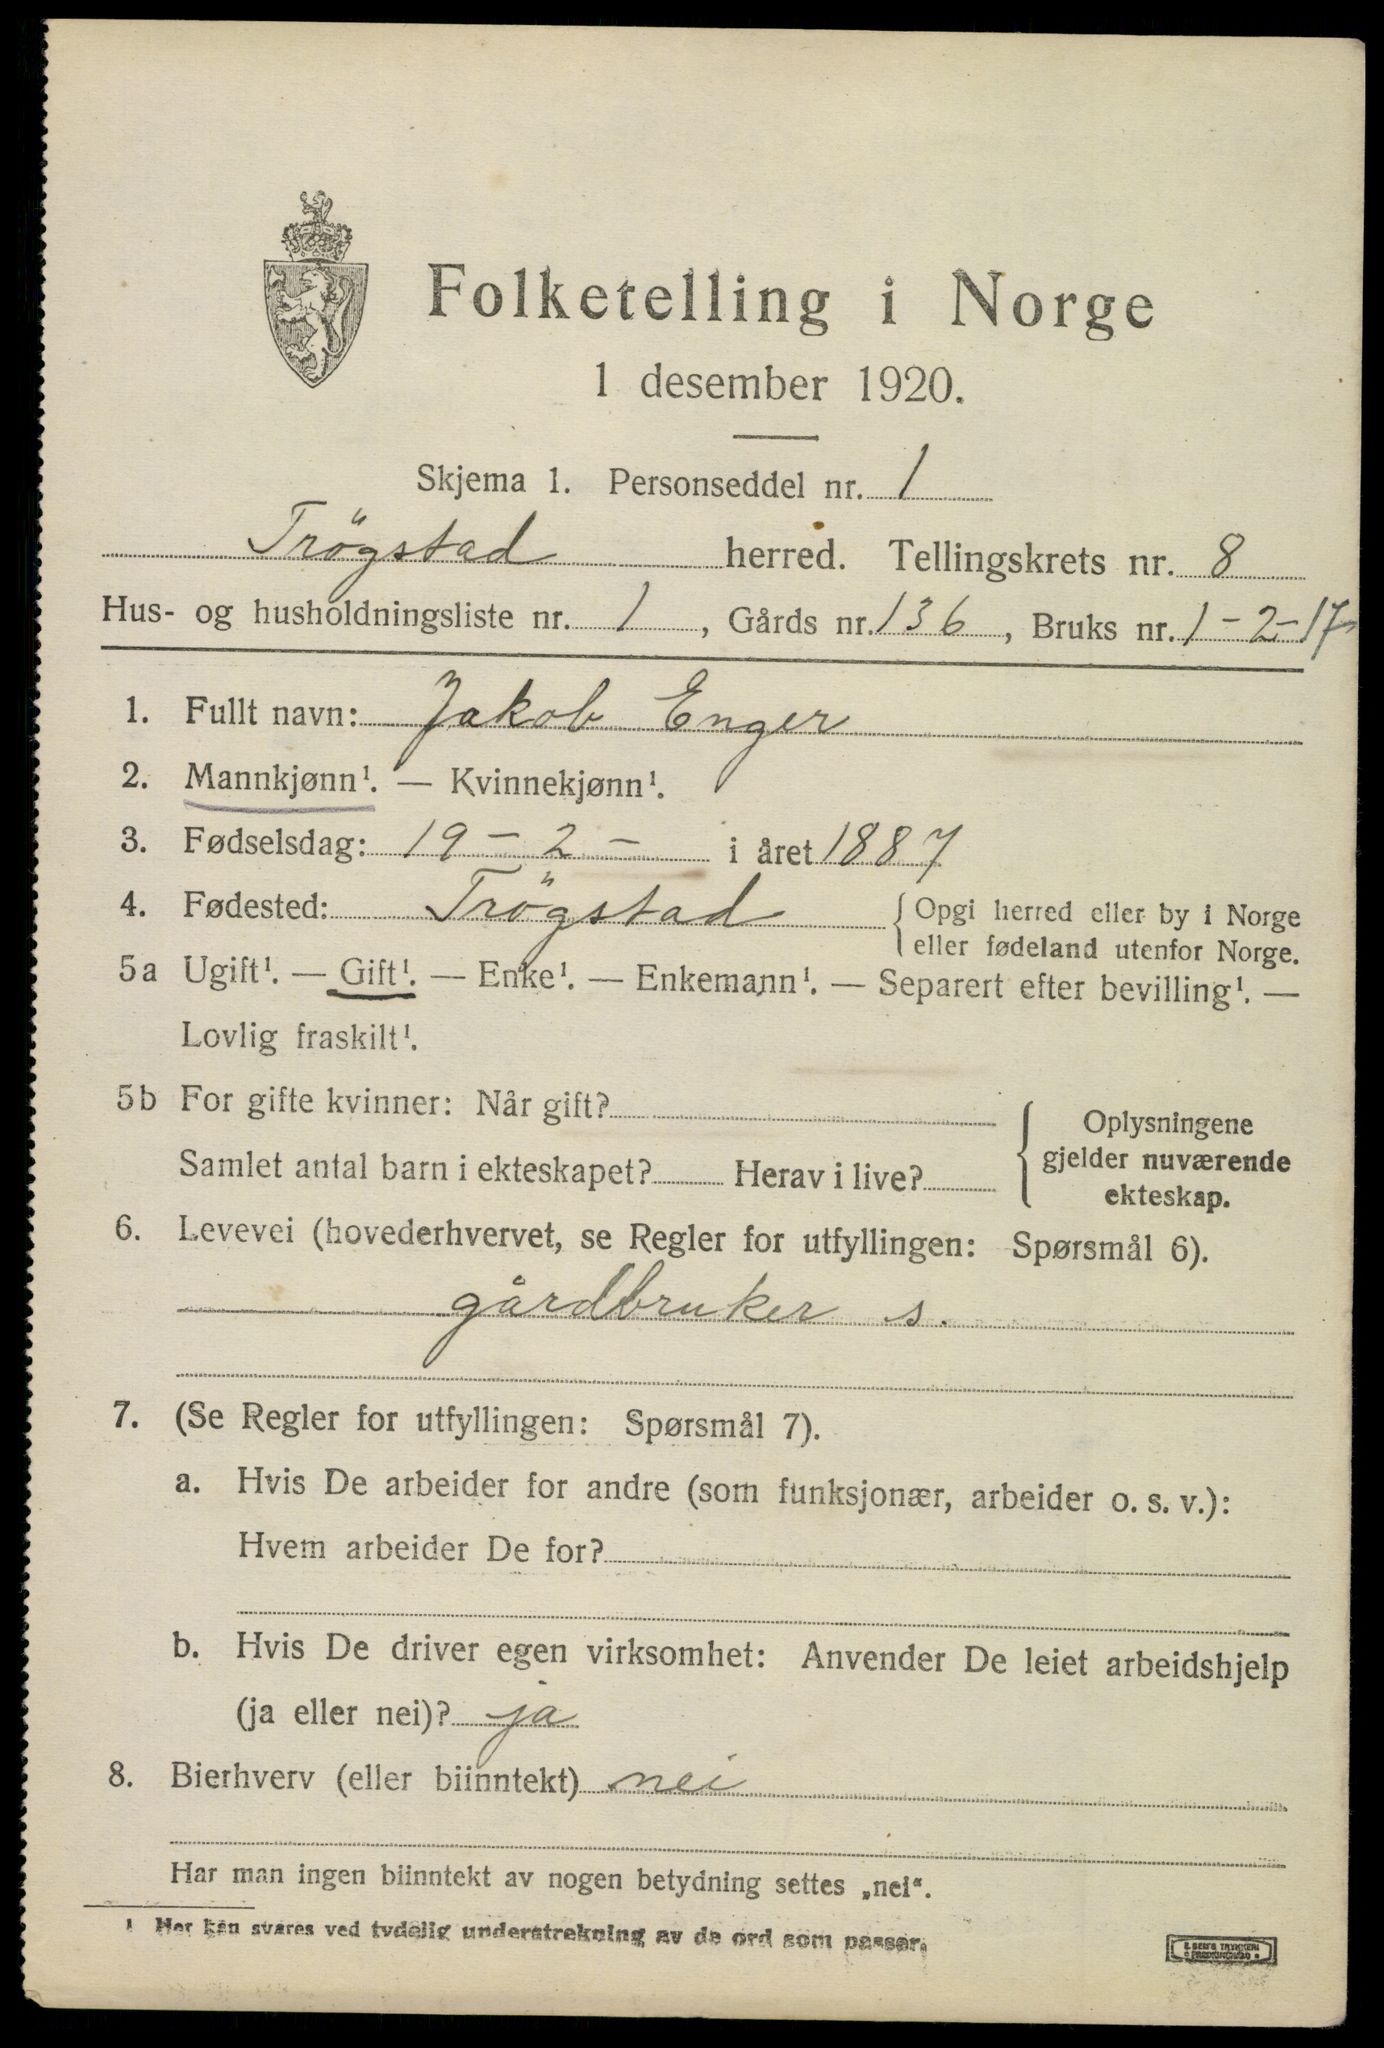 Folketelling i Norge
1 desember 1920.
Skjema 1. Personseddel nr. 1
Trögstad herred. Tellingskrets nr. 8
Hus- og husholdningsliste nr. 1, Gårds nr. 136, Bruks nr. 1-2-17
1. Fullt navn: Jakob Enger
2. Mannkjønn¹. — Kvinnekjønn¹.
3. Fødselsdag: 19 - 2 - i året 1887
4. Fødested: Trögstad { Opgi herred eller by i Norge
eller fødeland utenfor Norge.
5a Ugift¹. — Gift¹. — Enke¹. — Enkemann¹. — Separert efter bevilling¹. —
Lovlig fraskilt¹.
5b For gifte kvinner: Når gift?
Samlet antal barn i ekteskapet? Herav i live?
{ Oplysningene
gjelder nuværende
ekteskap.
6. Levevei (hovederhvervet, se Regler for utfyllingen: Spørsmål 6).
gårdbruker s.
7. (Se Regler for utfyllingen: Spørsmål 7).
a. Hvis De arbeider for andre (som funksjonær, arbeider o. s. v.):
Hvem arbeider De for?
b. Hvis De driver egen virksomhet: Anvender De leiet arbeidshjelp
(ja eller nei)? ja
8. Bierhverv (eller biinntekt) nei
Har man ingen biinntekt av nogen betydning settes „nei“.
1 Her kan svares ved tydelig understrekning av de ord som passer.